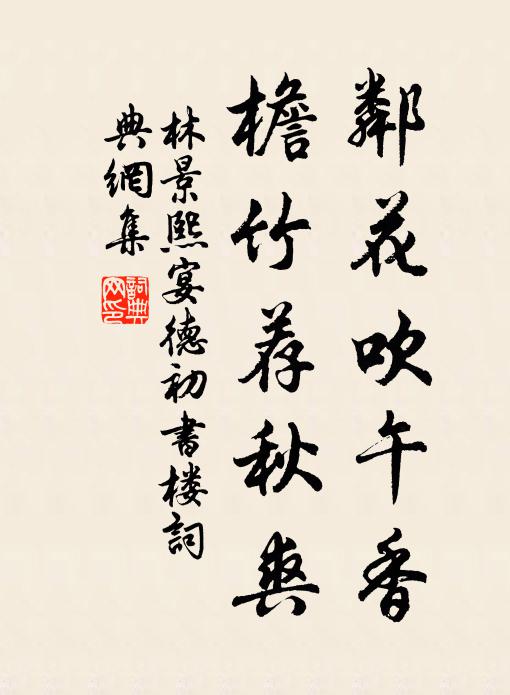 鄰花吹午香
檐竹荐秋爽
林景熙宴德初書楼詞
典網集
詞典
网印